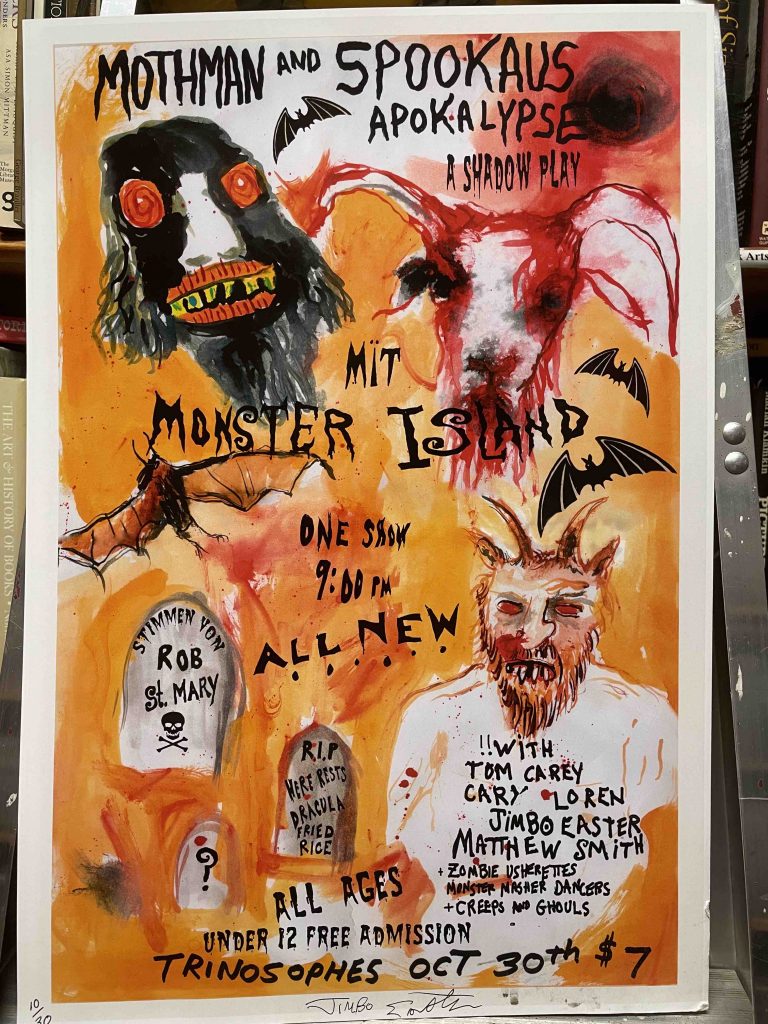 MOTHMAN AND SPOOKAUS
APOKALYPSE
A SHADOW PLAY
MÏT
MONSTER ISLAND
ONE SHOW
9:00 PM
ALL NEW
STIMMEN VON
ROB
St. MARY
R.I.P
HERE RESTS
DRACULA
FRIED
RICE
?
!!WITH
TOM CAREY
CARY LOREN
JIMBO EASTER
MATTHEW SMITH
+ ZOMBIE USHERETTES
MONSTER MASHER DANCERS
+ CREEPS AND GHOULS
ALL AGES
UNDER 12 FREE ADMISSION
TRINOSOPHES OCT 30th $7
10/30
JIMBO
ASA SIMON MITTMAN
THE ART & HISTORY OF BOOKS
Arts